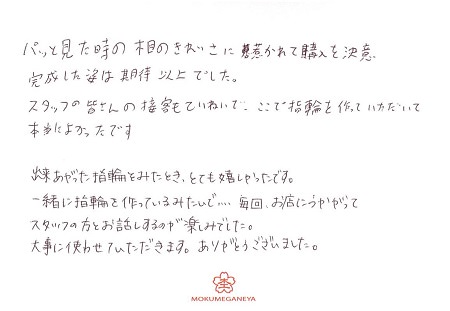 パッと見た時の相のきれいさに惹かれて購入を決意
完成した姿は期待以上でした。
スタッフの皆さんの接客もていねいで、ここで指輪を作っていただいて
本当によかったです
出来あがった指輪をみたとき、とても嬉しかったです。
一緒に指輪を作っているみたいで… 毎回、お店にうかがって
スタッフの方とお話しするのが楽しみでした。
大事に使わせていただきます。ありがとうございました。
杢
MOKUMEGANEYA